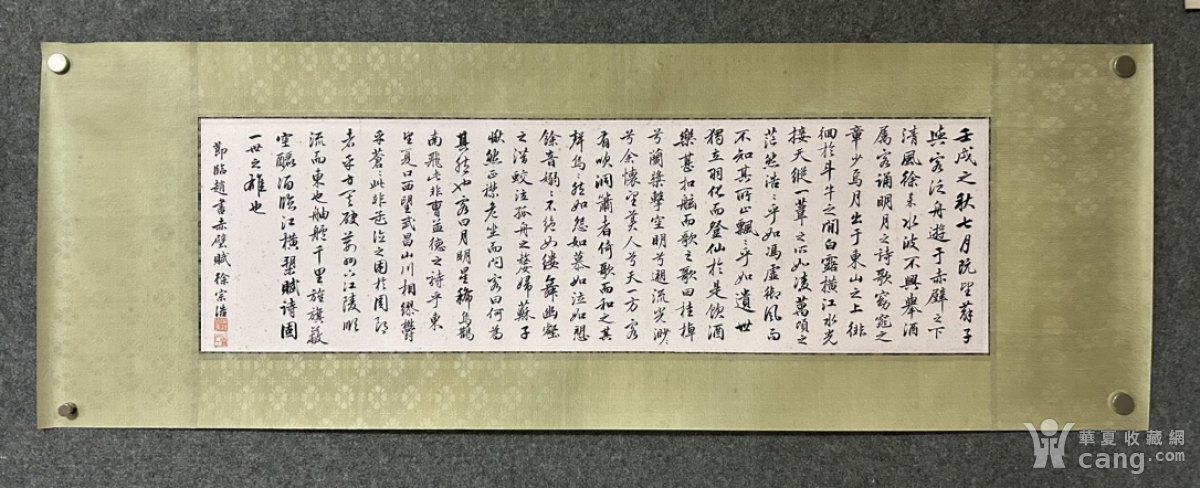 壬戌之秋七月既望蘇子
與客泛舟遊于赤壁之下
清風徐來水波不興舉酒
屬客誦明月之詩歌窈窕之
章少焉月出于東山之上徘
徊於斗牛之間白露橫江水光
接天縱一葦之所如凌萬頃之
茫然浩〻乎如馮虛御風而
不知其所止飄〻乎如遺世
獨立羽化而登仙於是飲酒
樂甚扣舷而歌之歌曰桂棹
兮蘭槳擊空明兮溯流光渺〻
兮余懷望美人兮天一方客
有吹洞簫者倚歌而和之其
聲烏〻然如怨如慕如泣如愬
餘音嫋〻不絕如縷舞幽壑
之潛蛟泣孤舟之嫠婦蘇子
愀然正襟危坐而問客曰何為
其然也客曰月明星稀烏鵲
南飛此非曹孟德之詩乎東
望夏口西望武昌山川相繆鬱
乎蒼〻此非孟德之困於周郎
者乎方其破荊州下江陵順
流而東也舳艫千里旌旗蔽
空釃酒臨江橫槊賦詩固
一世之雄也
節臨趙書赤壁賦 徐宗浩
華夏收藏網
cang.com